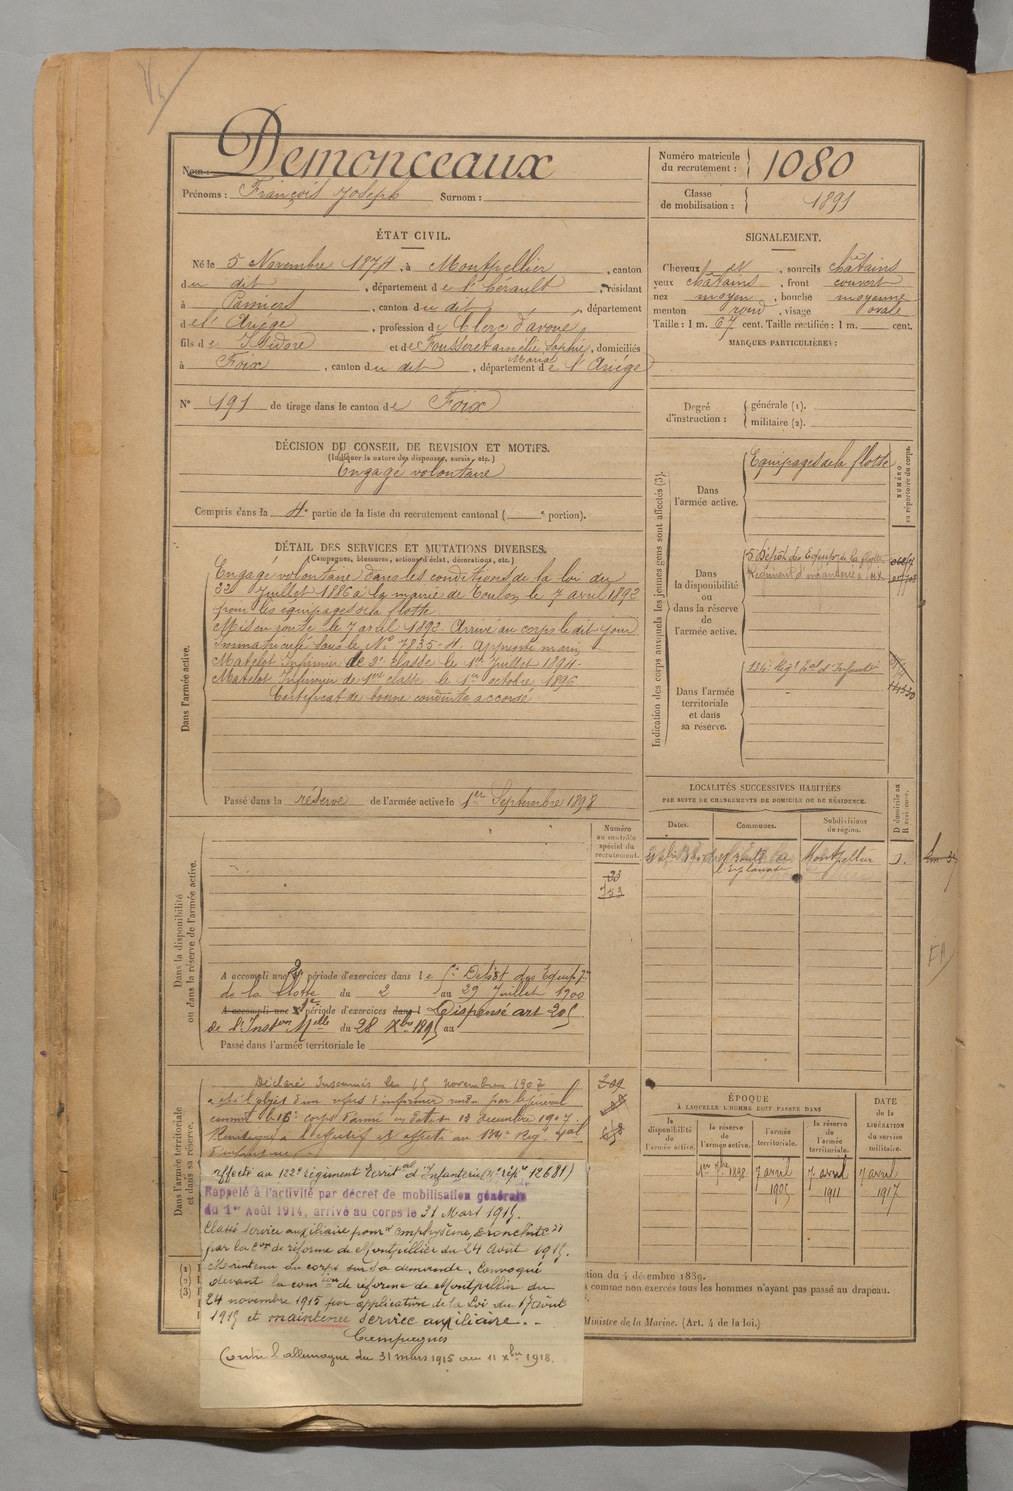 Nom : Demonceaux
Prénoms : François Joseph Surnom :
Numéro matricule du recrutement : 1080
Classe de mobilisation : 1891
ÉTAT CIVIL.
Né le 5 Novembre 1874, à Montpellier, canton
du dit, département de l'hérault, résidant
à Pamiers, canton du dit, département
de l'Ariége, profession de Clerc d'avoué
fils de Isidore et de Amélie Sophie, domiciliés
Maria
à Foix, canton du dit, département de l'Ariége
N° 191 de tirage dans le canton de Foix
SIGNALEMENT.
Cheveux et, sourcils châtains
yeux châtains, front couvert
nez moyen, bouche moyenne
menton rond, visage ovale
Taille : 1 m. 67 cent. Taille rectifiée : 1 m. cent.
MARQUES PARTICULIÈRES :
Degré d'instruction : générale (1).
militaire (2).
DÉCISION DU CONSEIL DE REVISION ET MOTIFS.
(Indiquer la nature des dispenses, sursis, etc.)
Engagé volontaire
Compris dans la 4e partie de la liste du recrutement cantonal ( e portion).
DÉTAIL DES SERVICES ET MUTATIONS DIVERSES.
(Campagnes, blessures, actions d'éclat, décorations, etc.)
Dans l'armée active.
Engagé volontaire dans les conditions de la loi du
Juillet 1886 à la mairie de Toulon le 7 avril 1892
pour les equipages de la flotte
Mis en route le 7 avril 1892. Arrivé au corps le dit jour
immatriculé sous le N° 7835-4. Apprenti marin
Matelot Infirmier de 2e classe le 1er Juillet 1894-
Matelot Infirmier de 1ère classe le 1er octobre 1896
Certificat de bonne conduite accordé
Passé dans la réserve de l'armée active le 1er Septembre 1898
Indication des corps auxquels les jeunes gens sont affectés (3).
NUMÉRO au répertoire du corps.
Dans l'armée active.
Equipages de la flotte
Dans la disponibilité ou dans la réserve de l'armée active.
5 Dépôt des Equip. de la flotte
Régiment d'infanterie à
Dans l'armée territoriale et dans sa réserve.
134e Régt tal d'Infanterie
LOCALITÉS SUCCESSIVES HABITÉES
PAR SUITE DE CHANGEMENTS DE DOMICILE OU DE RÉSIDENCE.
Dates.
Communes.
Subdivisions de région.
D domicile ou R résidence.
l'Esplanade
Montpellier
D.
Dans la disponibilité ou dans la réserve de l'armée active.
Numéro au contrôle spécial du recrutement.
33
A accompli une 2e période d'exercices dans le 5e Dépôt des Equip.ges
de la flotte du 2 au 29 Juillet 1900
A accompli une 1ère période d'exercices dans l Dispensé art 205
de l'Inston Melle du 28 Xbre 1895 au
Passé dans l'armée territoriale le
Dans l'armée territoriale et dans sa réserve.
Déclaré Insoumis le 15 novembre 1907
a été l'objet d'un refus d'informer rendu par le général
commt le 16e corps d'armée en date du 13 Décembre 1907
et affecté au 134e Régt tal
d'infanterie
309
affecté au 122e Régiment Territal d'Infanterie (N° rép.re 12681)
Rappelé à l'activité par décret de mobilisation générale
du 1er Août 1914, arrivé au corps le 31 Mars 1915.
Classé service auxiliaire pour emphysème, bronchite
par la Con de réforme de Montpellier du 24 Août 1915.
Maintenu au corps sur sa demande. Convoqué
devant la comion de réforme de Montpellier du
24 novembre 1915 par application de la Loi du 17 août
1915 et maintenu service auxiliaire.
Campagnes
Contre l'allemagne du 31 mars 1915 au 11 xbre 1918.
ÉPOQUE
À LAQUELLE L'HOMME DOIT PASSER DANS
DATE de la LIBÉRATION du service militaire.
la disponibilité de l'armée active.
la réserve de l'armée active.
l'armée territoriale.
la réserve de l'armée territoriale.
1er 7bre 1898
7 avril 1905
7 avril 1911
7 avril 1917
(1)
(2)
(3)
ction du 4 décembre 1889.
s comme non exercés tous les hommes n'ayant pas passé au drapeau.
Ministre de la Marine. (Art. 4 de la loi.)